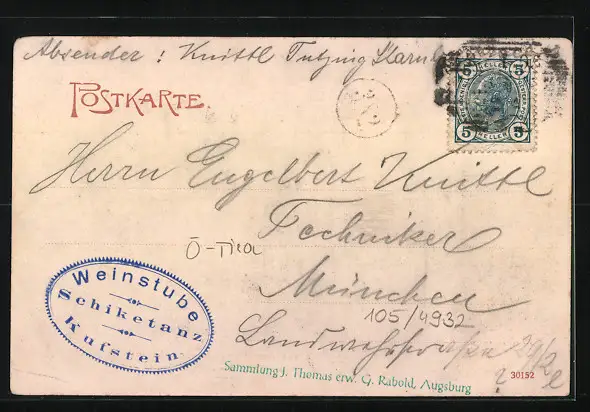 Absender : Knittl Tutzing Starn
POSTKARTE.
5 HELLER 5
5 HELLER 5
Herrn Engelbert Knittl
Techniker
Ö-Tirol
München
105/4932
Landwehrstrasse 29/2
Weinstube
Schiketanz
Kufstein
Sammlung J. Thomas erw. G. Rabold, Augsburg
30152